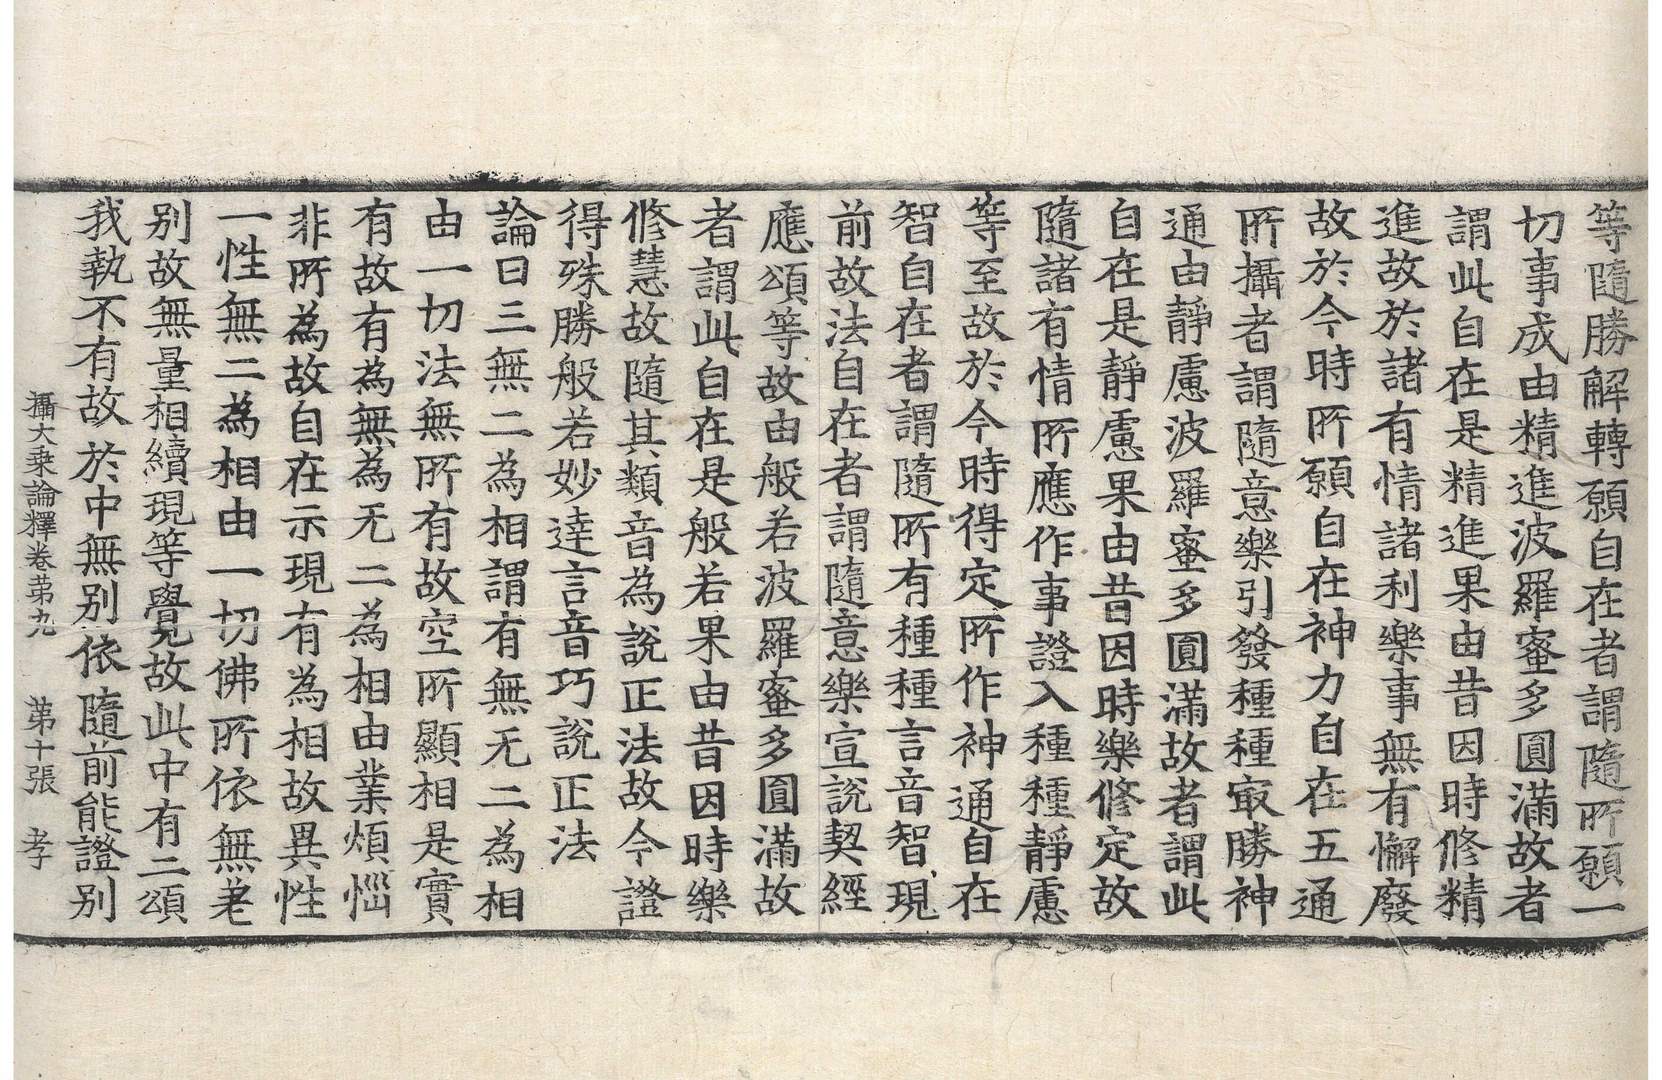 等隨勝解轉願自在者謂隨所願一
切事成由精進波羅蜜多圓滿故者
謂此自在是精進果由昔因時修精
進故於諸有情諸利樂事無有懈廢
故於今時所願自在神力自在五通
所攝者謂隨意樂引發種種㝡勝神
通由靜慮波羅蜜多圓滿故者謂此
自在是靜慮果由昔因時樂修定故
隨諸有情所應作事證入種種靜慮
等至故於今時得定所作神通自在
智自在者謂隨所有種種言音智現
前故法自在者謂隨意樂宣說契經
應頌等故由般若波羅蜜多圓滿故
者謂此自在是般若果由昔因時樂
修慧故隨其類音為說正法故今證
得殊勝般若妙達言音巧說正法
論曰三無二為相謂有無无二為相
由一切法無所有故空所顯相是實
有故有為無為无二為相由業煩惱
非所為故自在示現有為相故異性
一性無二為相由一切佛所依無差
別故無量相續現等覺故此中有二頌
我執不有故於中無別依隨前能證別
攝大乘論釋卷苐九　苐十張　孝